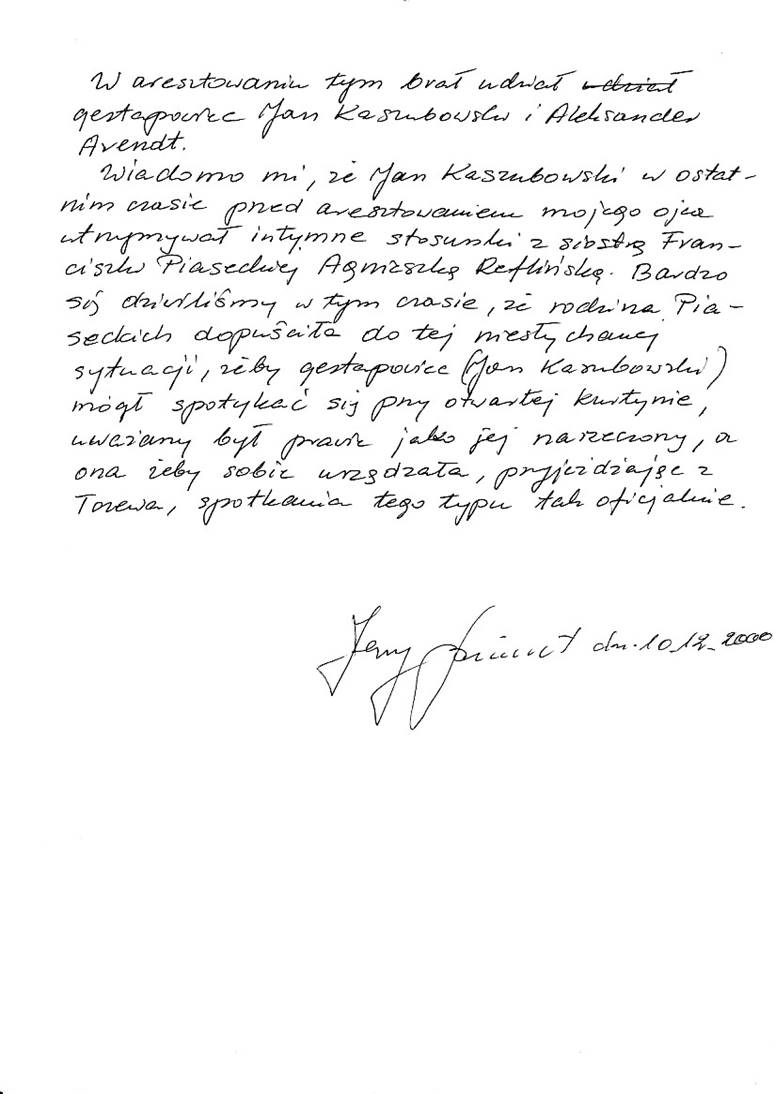 W aresztowaniu tym brał udział udział
gestapowiec Jan Kaszubowski i Aleksander
Arendt.
Wiadomo mi, że Jan Kaszubowski w ostat-
nim czasie przed aresztowaniem mojego ojca
utrzymywał intymne stosunki z siostrą Fran-
ciszki Piaseckiej Agnieszką Reflińską. Bardzo
się dziwiliśmy w tym czasie, że rodzina Pia-
seckich dopuściła do tej niesłychanej
sytuacji, żeby gestapowiec (Jan Kaszubowski)
mógł spotykać się przy otwartej kurtynie,
uważany był prawie jako jej narzeczony, a
ona żeby sobie urządzała, przyjeżdżając z
Torewa, spotkania tego typu tak oficjalnie.
Jerzy dn. 10.12.2000